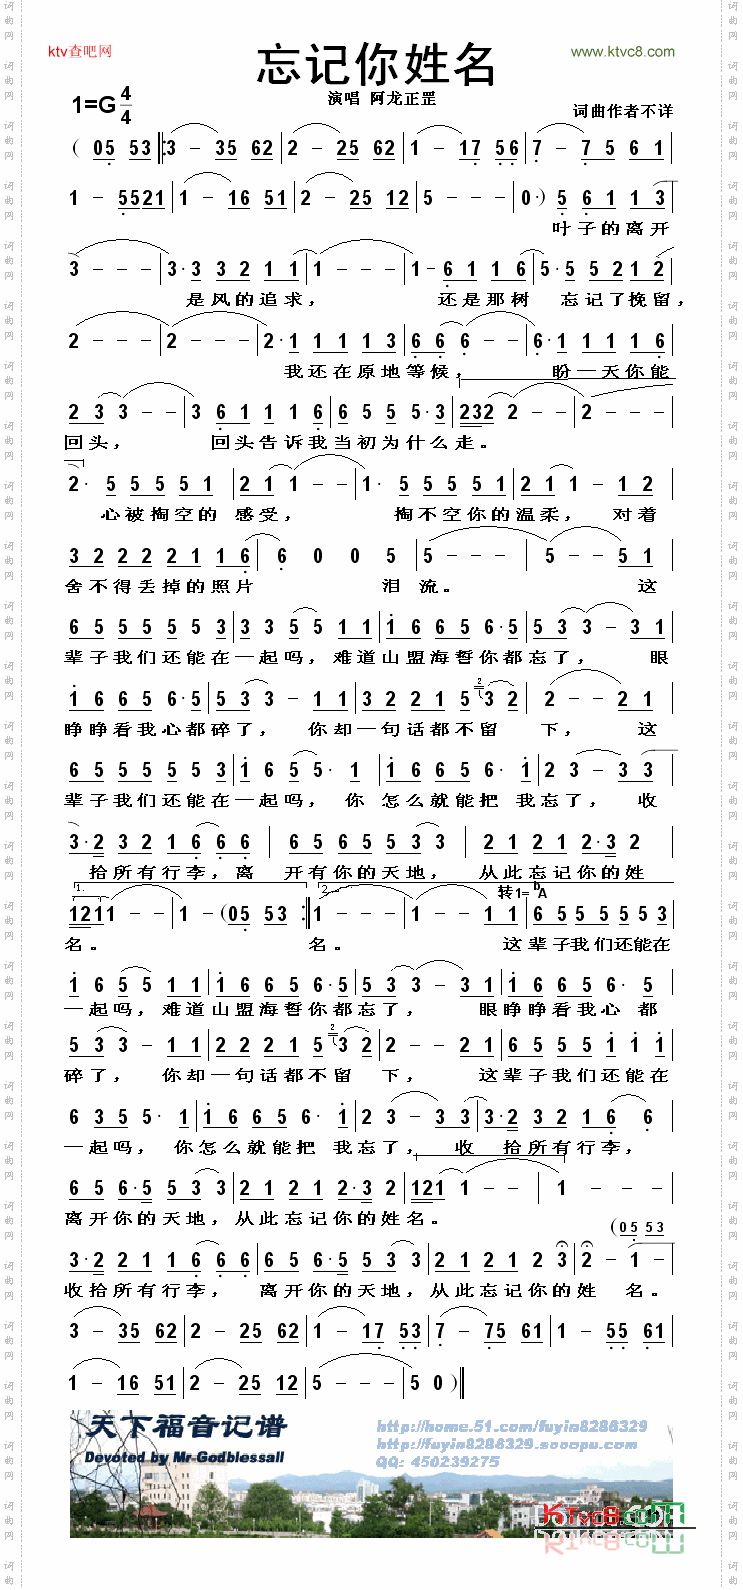 ktv查吧网
忘记你姓名
www.ktvc8.com
演唱 阿龙正罡
1=G 4/4
词曲作者不详
( 05 53 ‖: 3 – 35 62 | 2 – 25 62 | 1 – 17 56 | 7 – 7 5 6 1 |
1 – 5521 | 1 – 16 51 | 2 – 25 12 | 5 – – – | 0 · ) 5 6 1 1 3
叶子的离开
3 – – – | 3 · 3 3 2 1 1 | 1 – – – | 1 – 6 1 1 6 | 5 · 5 5 2 1 2
是风的追求， 还是那树 忘记了挽留，
2 – – – | 2 – – – | 2 · 1 1 1 1 3 | 6 6 6 – – | 6 · 1 1 1 1 6
我还在原地等候， 盼一天你能
2 3 3 – – | 3 6 1 1 1 6 | 6 5 5 5 · 3 | 232 2 – – | 2 – – –
回头， 回头告诉我当初为什么走。
2 · 5 5 5 5 1 | 2 1 1 – – | 1 · 5 5 5 5 1 | 2 1 1 – 1 2
心被掏空的 感受， 掏不空你的温柔， 对着
3 2 2 2 2 1 1 6 | 6 0 0 5 | 5 – – – | 5 – – 5 1
舍不得丢掉的照片 泪 流。 这
6 5 5 5 5 5 3 | 3 3 5 5 1 1 | 1 6 6 5 6 · 5 | 5 3 3 – 3 1
辈子我们还能在一起吗，难道山盟海誓你都忘了， 眼
1 6 6 5 6 · 5 | 5 3 3 – 1 1 | 3 2 2 1 5 3 2 | 2 – – 2 1
睁睁看我心都碎了， 你却一句话都不留 下， 这
6 5 5 5 5 5 3 | 1 6 5 5 · 1 | 1 6 6 5 6 · 1 | 2 3 – 3 3
辈子我们还能在一起吗， 你 怎么就能把 我忘了， 收
3 · 2 3 2 1 6 6 6 | 6 5 6 5 5 3 3 | 2 1 2 1 2 · 3 2
拾所有行李，离 开有你的天地， 从此忘记你的姓
1. 2. 转1=bA
1211 – – | 1 – (05 53 :‖ 1 – – – | 1 – – 1 1 | 6 5 5 5 5 5 3
名。 名。 这辈子我们还能在
1 6 5 5 1 1 | 1 6 6 5 6 · 5 | 5 3 3 – 3 1 | 1 6 6 5 6 · 5
一起吗，难道山盟海誓你都忘了， 眼睁睁看我心 都
5 3 3 – 1 1 | 2 2 2 1 5 3 2 | 2 – – 2 1 | 6 5 5 5 1 1 1
碎了， 你却一句话都不留 下， 这辈子我们还能在
6 3 5 5 · 1 | 1 6 6 5 6 · 1 | 2 3 – 3 3 | 3 · 2 3 2 1 6 6
一起吗， 你怎么就能把 我忘了， 收 拾所有行李，
6 5 6 · 5 5 3 3 | 2 1 2 1 2 · 3 2 | 121 1 – – | 1 – – –
离开你的天地，从此忘记你的姓名。
(05 53
3 · 2 2 1 1 6 6 6 | 6 5 6 · 5 5 3 3 | 2 1 2 1 2 3 | 2 – 1 –
收拾所有行李， 离开你的天地，从此忘记你的姓 名。
3 – 35 62 | 2 – 25 62 | 1 – 17 53 | 7 – 75 61 | 1 – 55 61
1 – 16 51 | 2 – 25 12 | 5 – – – | 5 0 ) ‖
天下福音记谱
Devoted by Mr-Godblessall
http://home.51.com/fuyin8286329
http://fuyin8286329.sooopu.com
QQ: 450239275
KTvc8.com